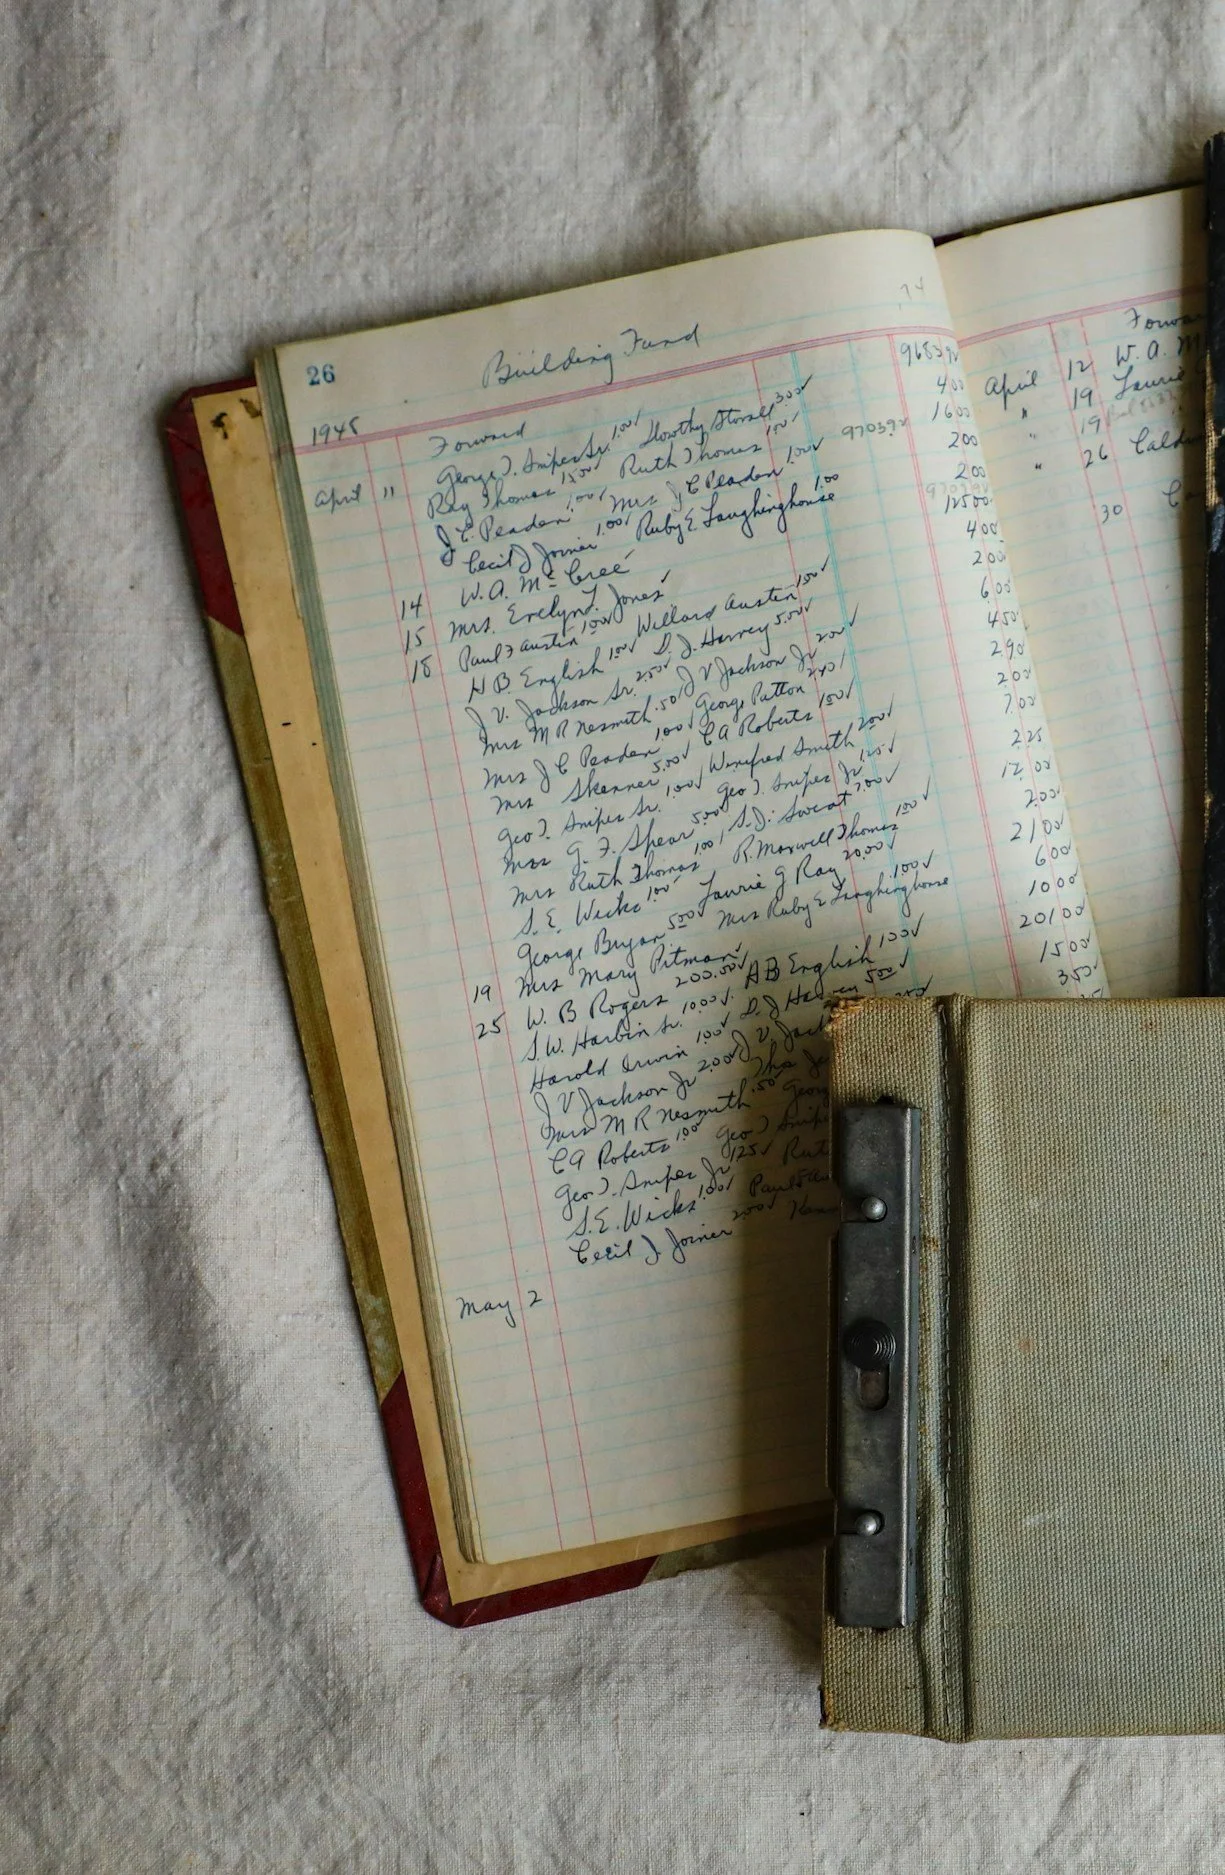 74
26 Building Fund
1945 Forward 9683 92
April 11 George T. Snipes Sr. 1.00 Dorothy Stovall 3.00 4 00
Ray Thomas 15.00 Ruth Thomas 1.00 970392 16 00
J. C. Peaden 1.00 Mrs J C Peaden 1.00 2 00
Cecil J Joiner 1.00 Ruby E Laughinghouse 1.00 2 00
14 W. A. McCree 125 00
15 Mrs. Evelyn L. Jones 4 00
18 Paul F Austin 1.00 Willard Austin 1.00 2 00
H B. English 1.00 D. J. Harvey 5.00 6 00
J V. Jackson Sr. 2.50 J V Jackson Jr 2.00 4 50
Mrs M R Nesmith .50 George Patton 2.40 2 90
Mrs J C Peaden 1.00 C A Roberts 1.00 2 00
Mrs Skenner 5.00 Winifred Smith 2.00 7 00
Geo T. Snipes Sr. 1.00 Geo T. Snipes Jr 1.25 2 25
Mrs G. F. Spear 5.00 S. J. Sweat 7.00 12 00
Mrs Ruth Thomas 1.00 R. Maxwell Thomas 1.00 2 00
S. E. Wicks 1.00 Laurie G Ray 20.00 21 00
George Bryan 5.00 Mrs Ruby E Laughinghouse 1.00 6 00
19 Mrs Mary Pitman 10 00
25 W. B Rogers 200.00 A B English 1.00 201 00
S. W. Harbin Sr. 10.00 D. J Harvey 5.00 15 00
Harold Irwin 1.00 J V. Jack 3 50
J V Jackson Jr 2.00
Mrs M R Nesmith .50 Georg
C A Roberts 1.00 Geo T Snip
Geo T. Snipes Jr 1.25 Rut
S. E. Wicks 1.00 Paul
Cecil J. Joiner 2.00
May 2
Forwa
April 12 W. A. M
" 19 Laurie
" 19
" 26 Caldw
30